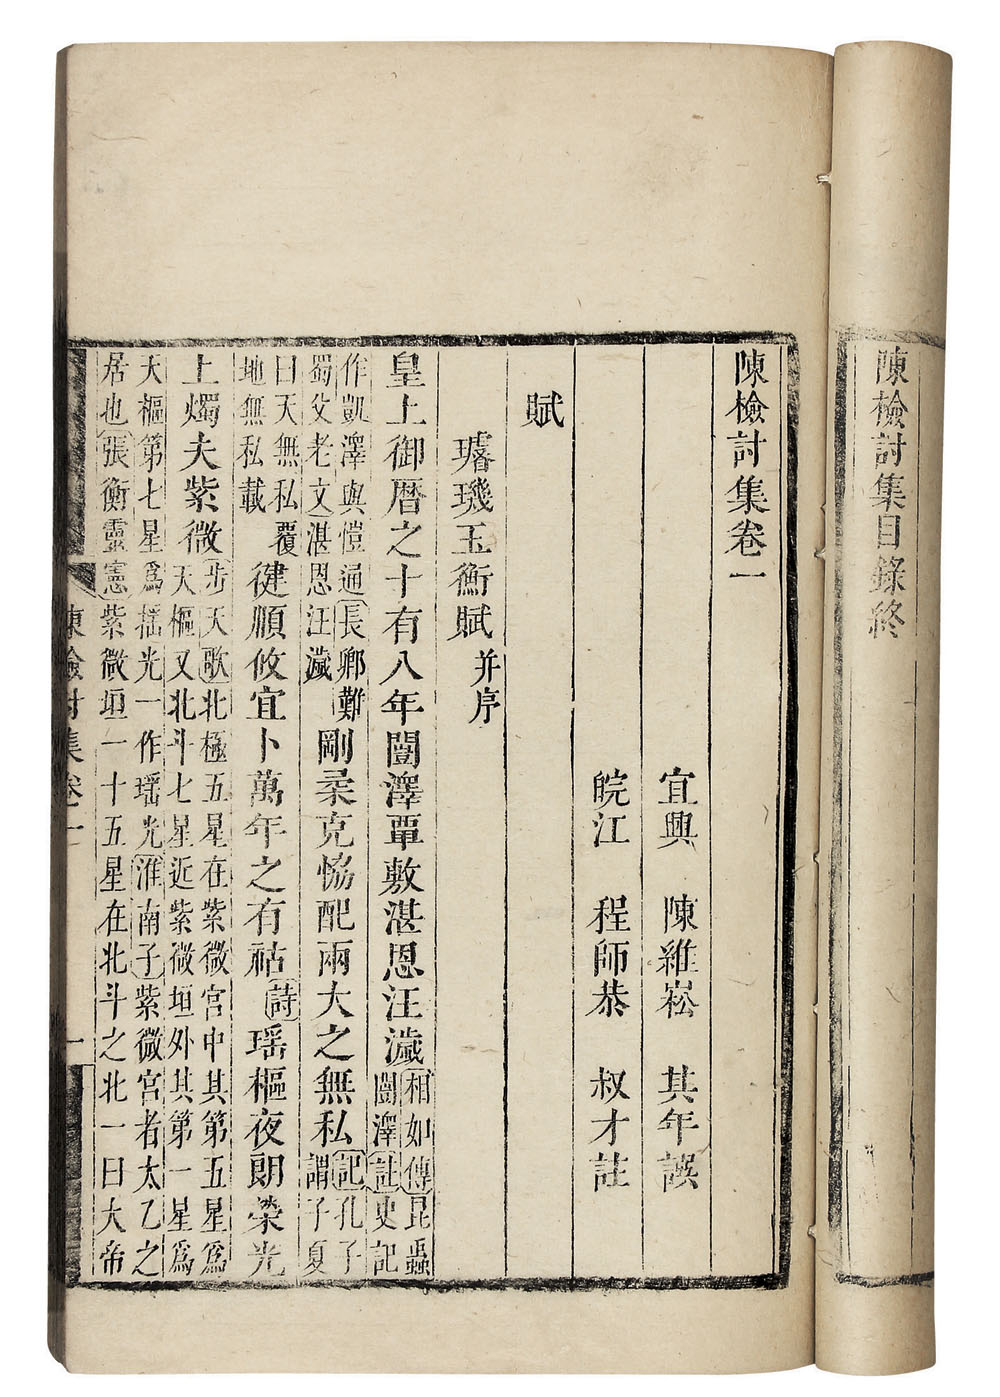 陳檢討集目錄終
陳檢討集卷一
宜興 陳維崧 其年譔
皖江 程師恭 叔才註
賦
璿璣玉衡賦并序
皇上御曆之十有八年闓澤覃敷湛恩汪濊相如傳昆蟲闓澤註史記
作凱澤與愷通長卿難蜀父老文湛恩汪濊剛柔克恊配兩大之無私記孔子謂子夏
曰天無私覆地無私載健順攸宜卜萬年之有祜詩瑤樞夜朗榮光
上燭夫紫微步天歌北極五星在紫微宮中其第五星爲天樞又北斗七星近紫微垣外其第一星爲
天樞第七星爲搖光一作瑤光淮南子紫微宮者太乙之居也張衡靈憲紫微垣一十五星在北斗之北一曰大帝
陳檢討集卷一
一